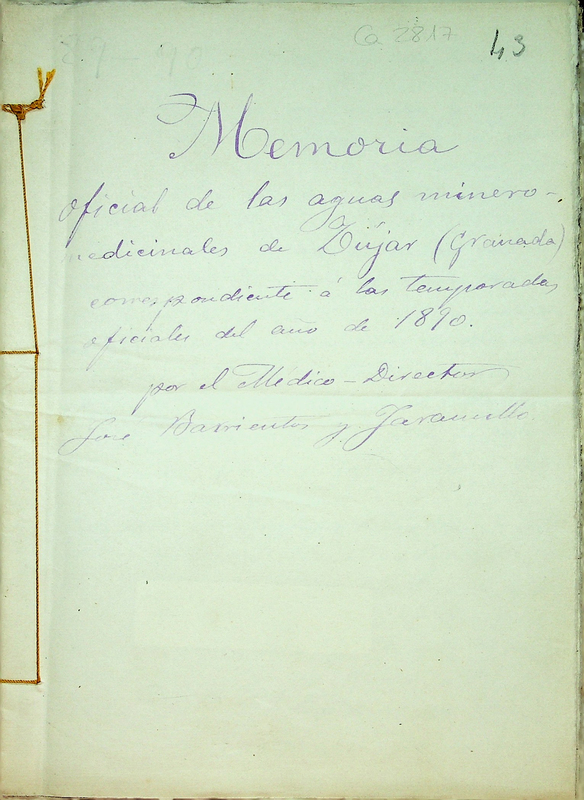 Ca 2817
43
Memoria
oficial de las aguas minero-
medicinales de Zújar (Granada)
correspondiente á las temporadas
oficiales del año de 1890.
por el Médico-Director
José Barrientos y Jaramillo.